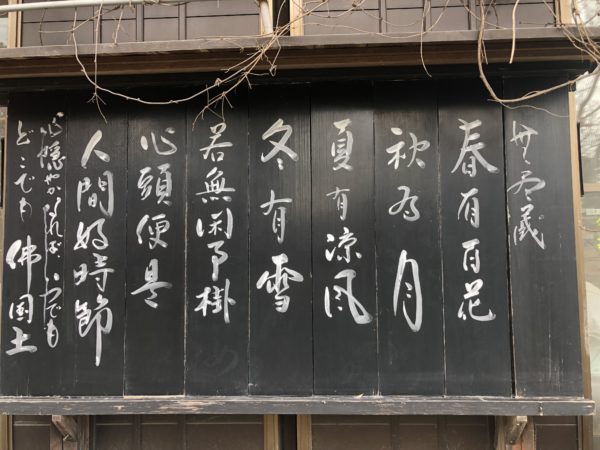 無尽蔵
春有百花
秋有月
夏有凉風
冬有雪
若無閑事掛
心頭便是
人間好時節
心穏やかなれば、いつでも
どこでも佛国土